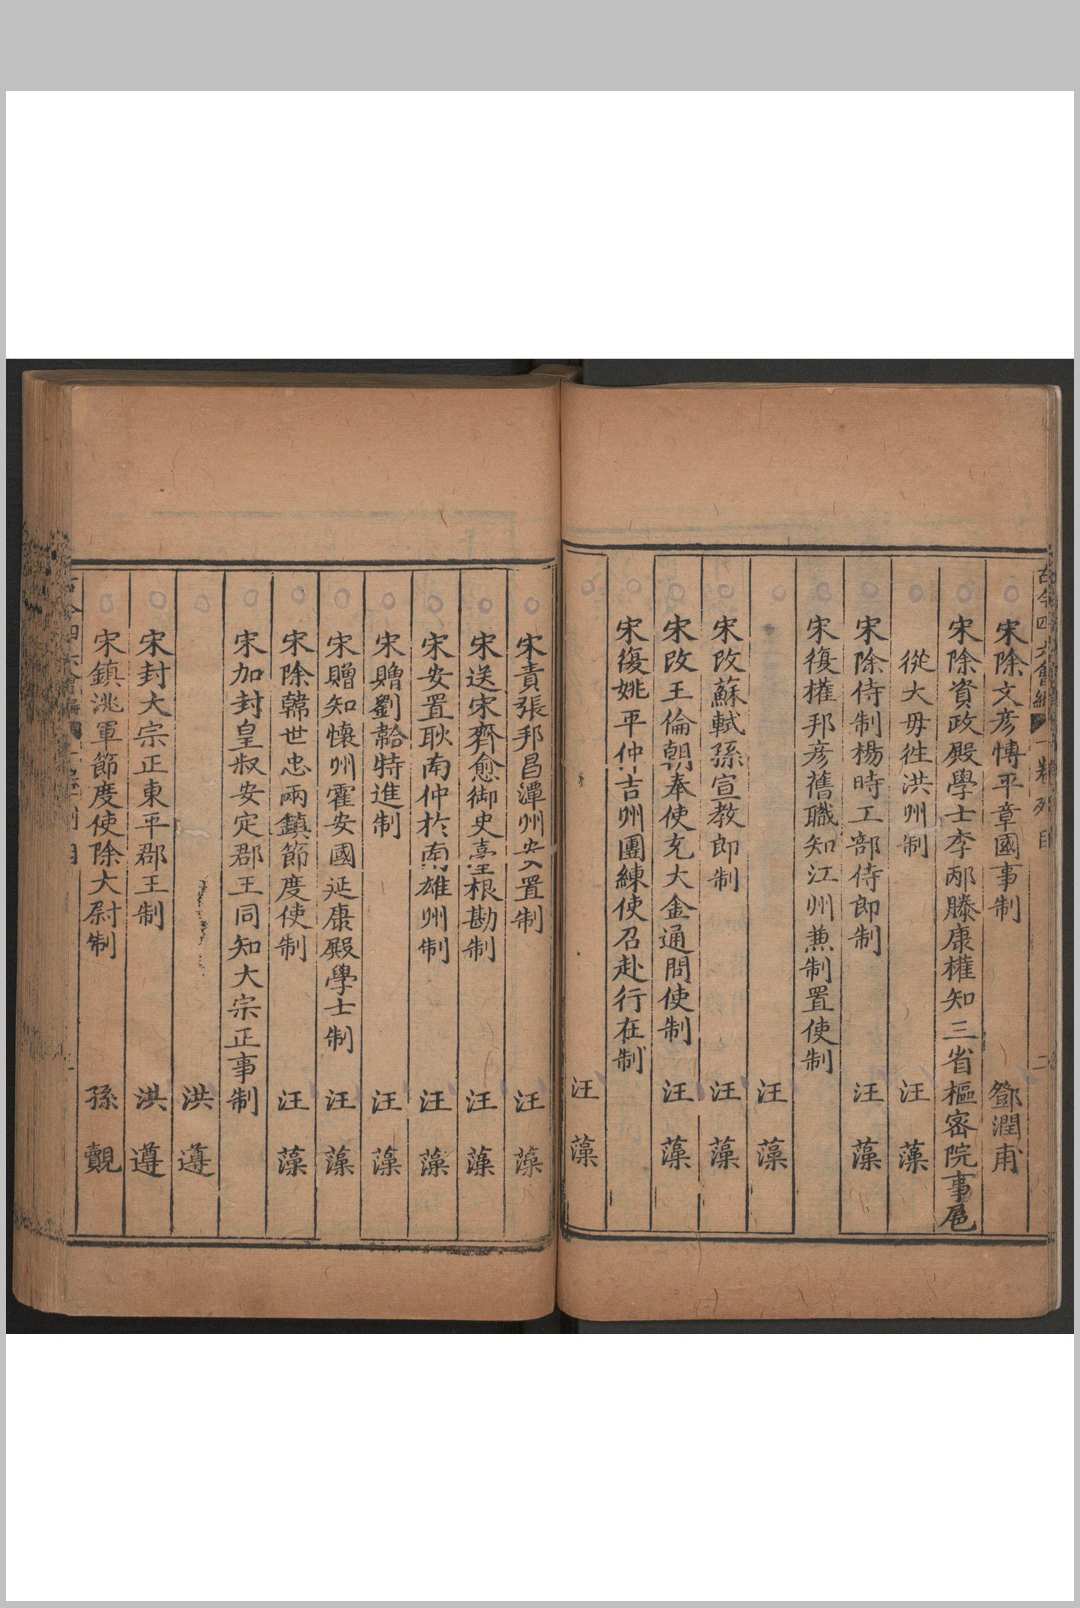 古今四六會編 一卷 列目 二
宋除文彥愽平章國事制 鄧潤甫
宋除資政殿學士李邴滕康權知三省樞密院事扈
從大母徃洪州制 汪藻
宋除侍制楊時工部侍郎制 汪藻
宋復權邦彥舊職知江州兼制置使制
汪藻
宋改蘇軾孫宣教郎制 汪藻
宋改王倫朝奉使充大金通問使制 汪藻
宋復姚平仲吉州團練使召赴行在制
汪藻
宋責張邦昌潭州安置制 汪藻
宋送宋齊愈御史臺根勘制 汪藻
宋安置耿南仲於南雄州制 汪藻
宋贈劉韐特進制 汪藻
宋贈知懷州霍安國延康殿學士制 汪藻
宋除韓世忠兩鎮節度使制 汪藻
宋加封皇叔安定郡王同知大宗正事制
洪遵
宋封大宗正東平郡王制 洪遵
宋鎮洮軍節度使除大尉制 孫覿
古今四六會編
目